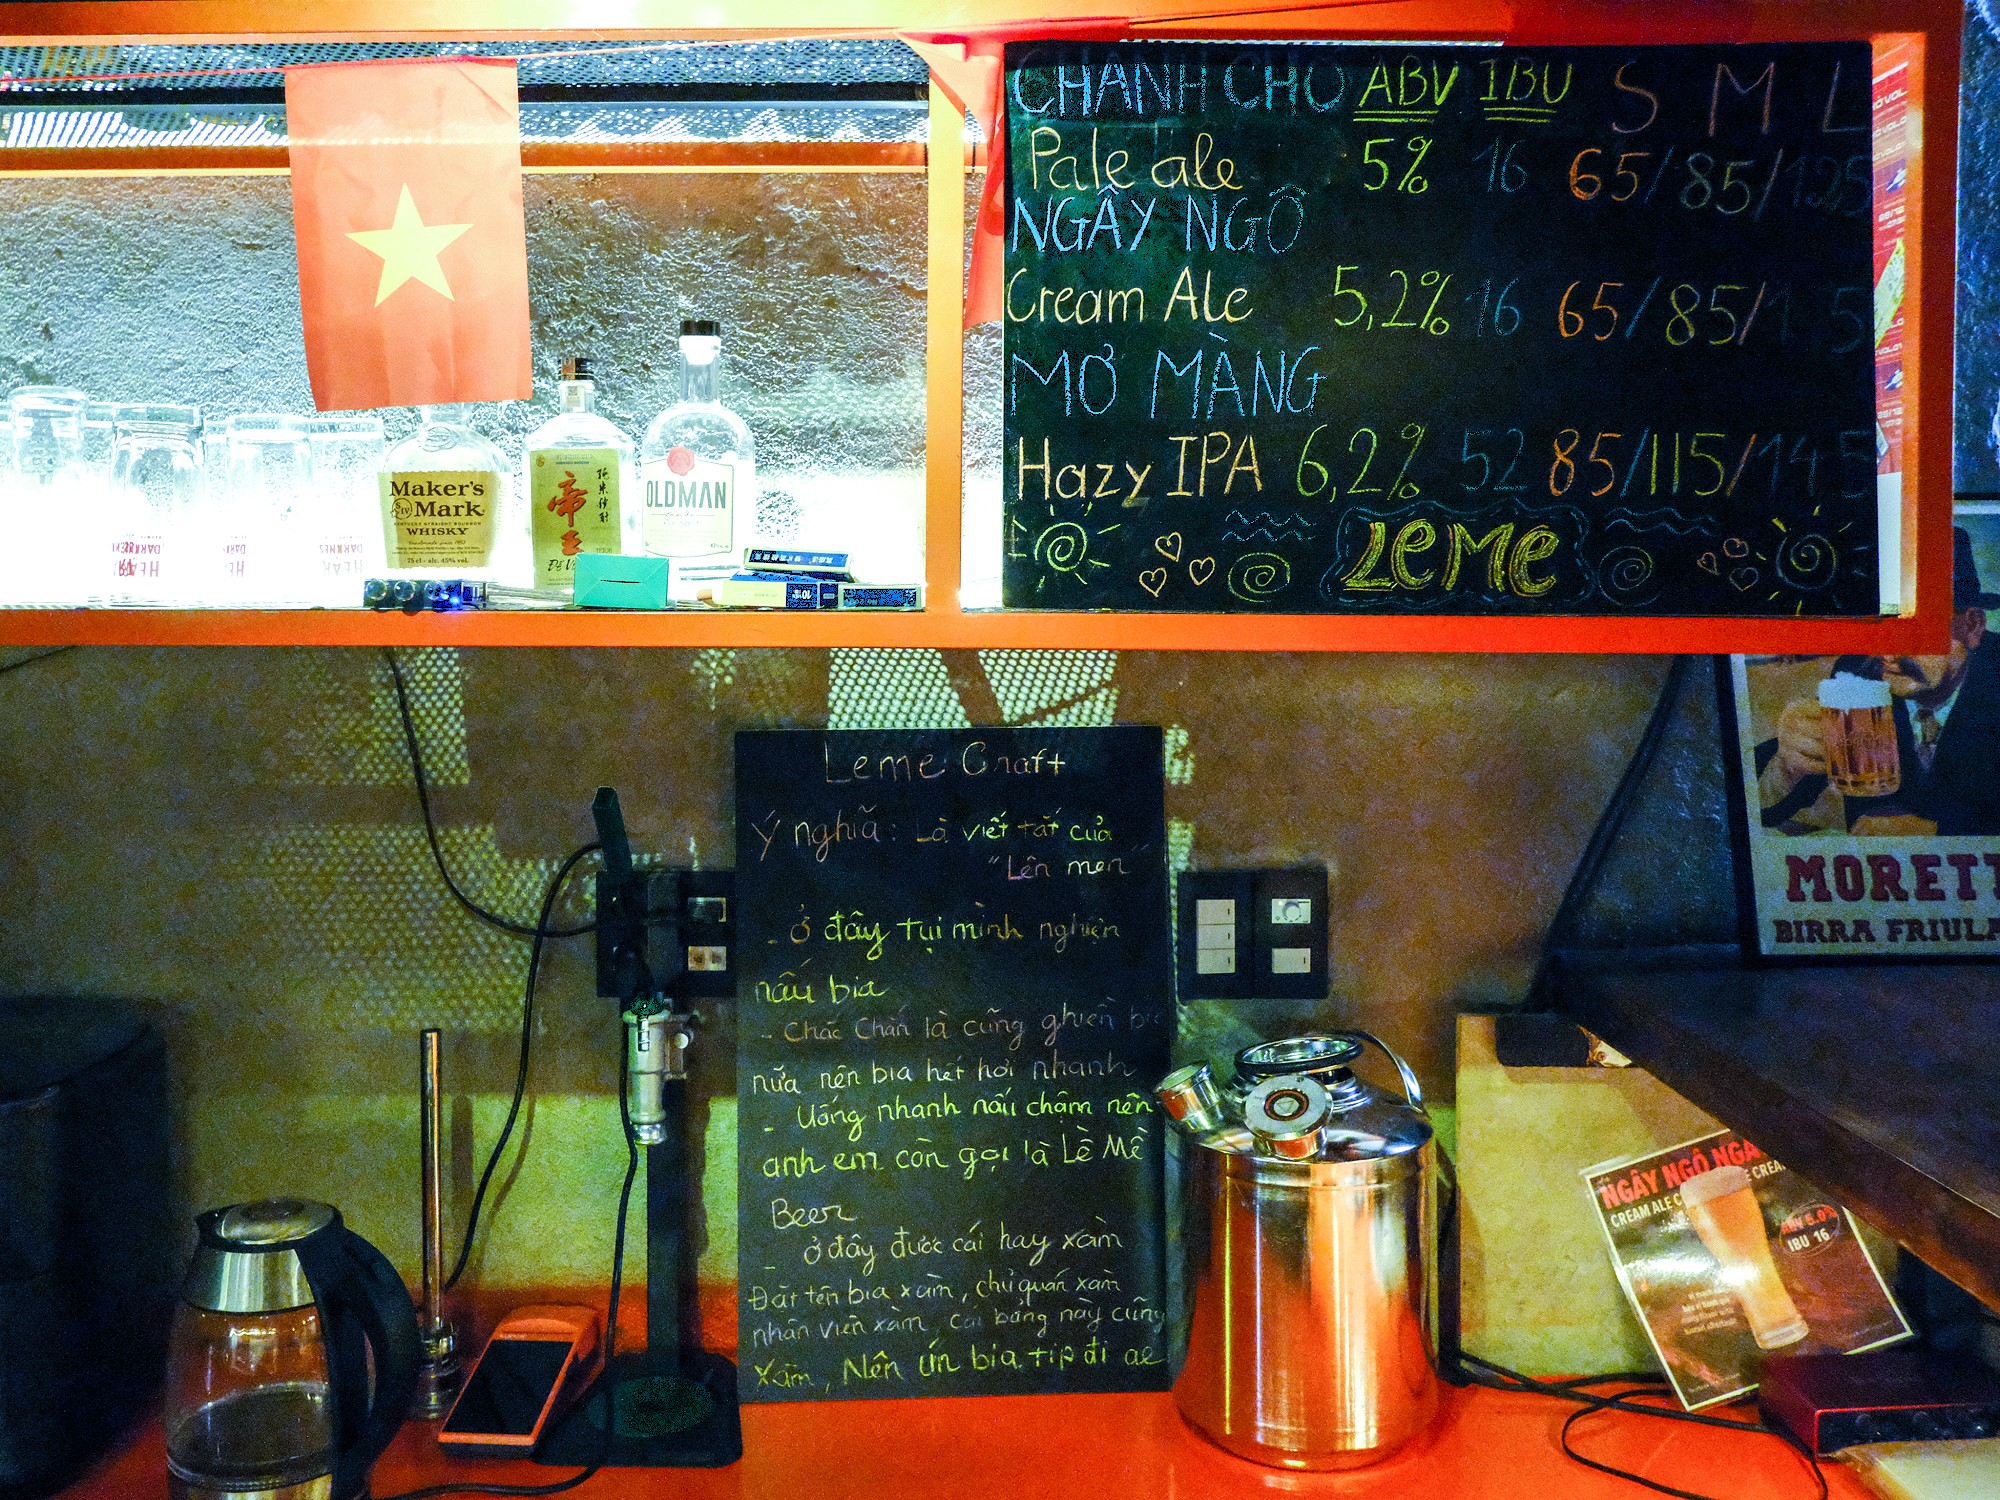 CHANH CHO ABV IBU S M L
Pale ale 5% 16 65/85/125
NGÂY NGÔ
Cream Ale 5,2% 16 65/85/1 5
MƠ MÀNG
Hazy IPA 6,2% 52 85/115/145
LEME
Maker's
SIV Mark
KENTUCKY STRAIGHT BOURBON
WHISKY
75 cl - alc. 45% vol.
帝
OLDMAN
Leme Craft
Ý nghĩa: Là viết tắt của
"Lên men"
- Ở đây tụi mình nghiện
nấu bia
- Chắc Chắn là cũng ghiền
nữa nên bia hết hơi nhanh
- Uống nhanh nấu chậm nên
anh em còn gọi là Lè Mề
Beer
- Ở đây được cái hay xàm
Đặt tên bia xàm, chủ quán xàm
nhân viên xàm, cái bảng này cũng
Xàm, Nên ủn bia tip đi ae
MORETT
BIRRA FRIULA
NGÂY NGÔ NGÂ
CREAM ALE
IBU 16